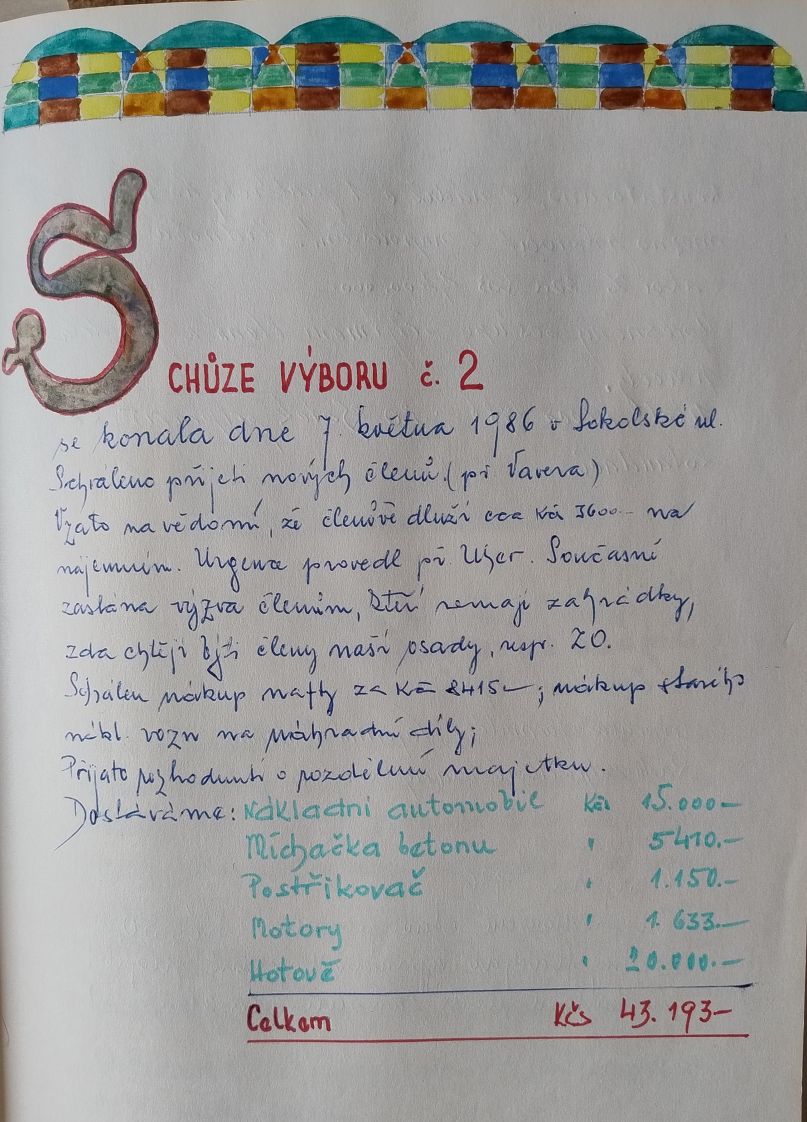 SCHŮZE VÝBORU č. 2
se konala dne 7. května 1986 v Sokolské ul.
Schváleno přijetí nových členů. (př. Vavera)
Vzato na vědomí, že členové dluží cca Kčs 3600.- na
nájemném. Urgence provedl př. Uher. Současně
zaslána výzva členům, kteří nemají zahrádky,
zda chtějí býti členy naší osady, resp. ZO.
Schválen nákup nafty za Kčs 8415.-; nákup starého
nákl. vozu na náhradní díly;
Přijato rozhodnutí o rozdělení majetku.
Dostáváme: Nákladní automobil Kčs 15.000.-
Míchačka betonu " 5410.-
Postřikovač " 1.150.-
Motory " 1.633.-
Hotově " 20.000.-
Celkem Kčs 43.193-